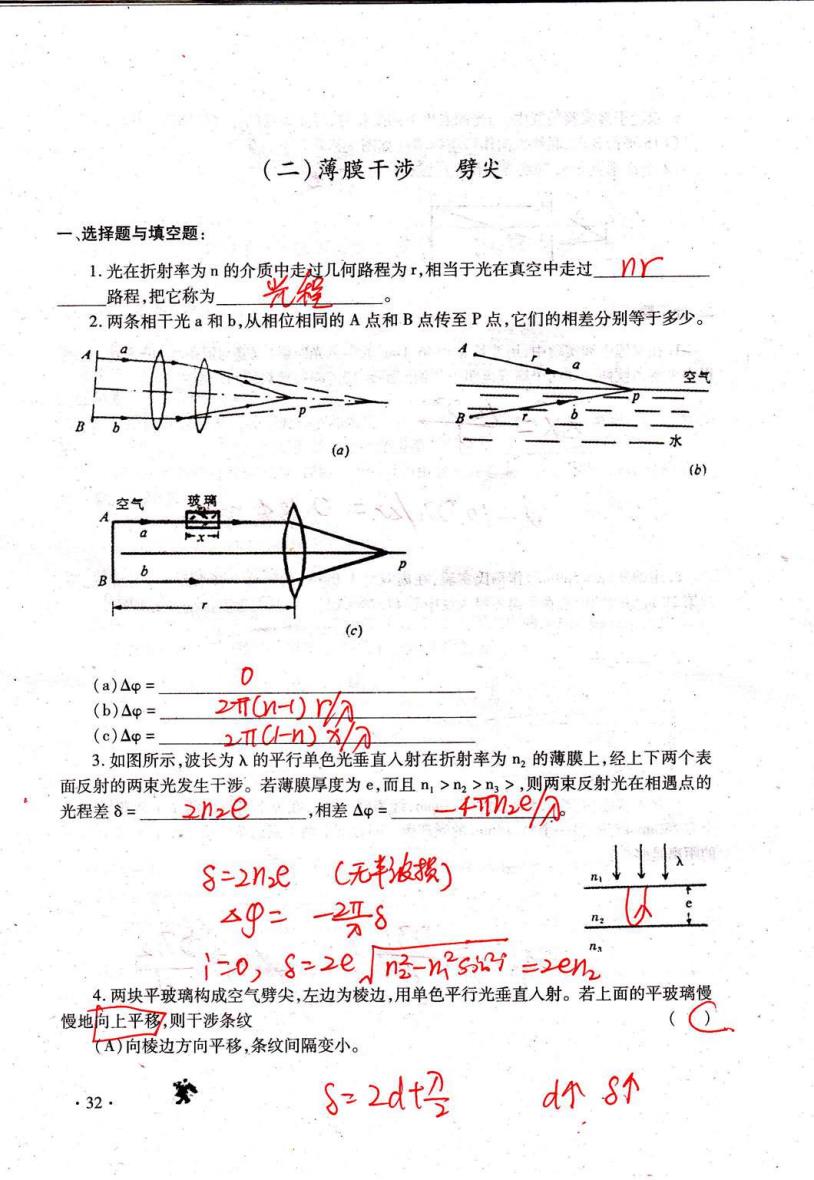 (二)薄膜干涉 劈尖
一、选择题与填空题:
1. 光在折射率为 n 的介质中走过几何路程为 r,相当于光在真空中走过 nr
路程,把它称为 光程 。
2. 两条相干光 a 和 b,从相位相同的 A 点和 B 点传至 P 点,它们的相差分别等于多少。
A a
B b p
(a)
A r a 空气
p
B r b
水
(b)
空气 玻璃
A a x
B b p
r
(c)
(a)Δφ = 0
(b)Δφ = 2π(n-1) r/λ
(c)Δφ = 2π(1-n) x/λ
3. 如图所示,波长为 λ 的平行单色光垂直入射在折射率为 n₂ 的薄膜上,经上下两个表
面反射的两束光发生干涉。若薄膜厚度为 e,而且 n₁ > n₂ > n₃ > ,则两束反射光在相遇点的
光程差 δ = 2n₂e ,相差 Δφ = -4πn₂e/λ。
δ=2n₂e (无半波损)
Δφ = -2π/λ δ
i=0, δ=2e√n₂²-n₁²sin²i =2en₂
λ
n₁
n₂ e
n₃
4. 两块平玻璃构成空气劈尖,左边为棱边,用单色平行光垂直入射。若上面的平玻璃慢
慢地向上平移,则干涉条纹 ( C )
(A)向棱边方向平移,条纹间隔变小。
δ=2d+λ/2 d↑ δ↑
· 32 ·